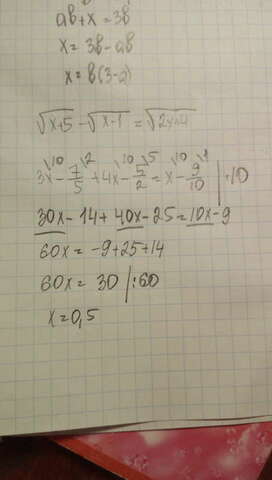 ab+x = 3b
x = 3b - ab
x = b(3-a)
√x+5 - √x-1 = √2x+4
3x\10 - 7/5\2 + 4x\10 - 5/2\5 = x\10 - 9/10\1 | ·10
30x - 14 + 40x - 25 = 10x - 9
60x = -9+25+14
60x = 30 | :60
x = 0,5